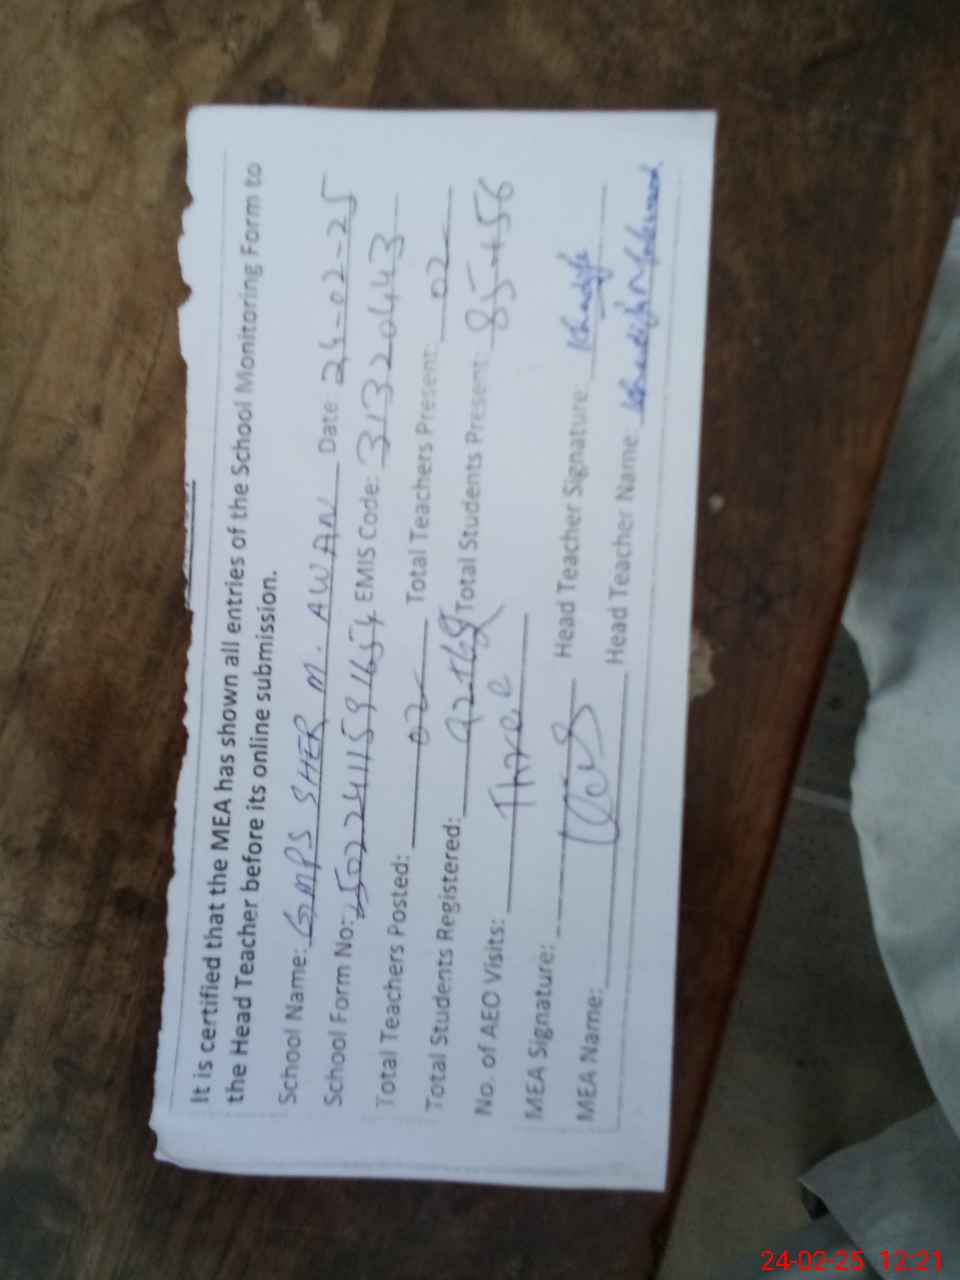 It is certified that the MEA has shown all entries of the School Monitoring Form to
the Head Teacher before its online submission.
School Name: GMPS SHER M. AWAN Date: 24-02-25
School Form No: EMIS Code: 31320443
Total Teachers Posted: 02 Total Teachers Present: 02
Total Students Registered: Total Students Present: 85+56
No. of AEO Visits: Three
MEA Signature: Head Teacher Signature: Khadija
MEA Name: Head Teacher Name: Khadija
24-02-25 12:21